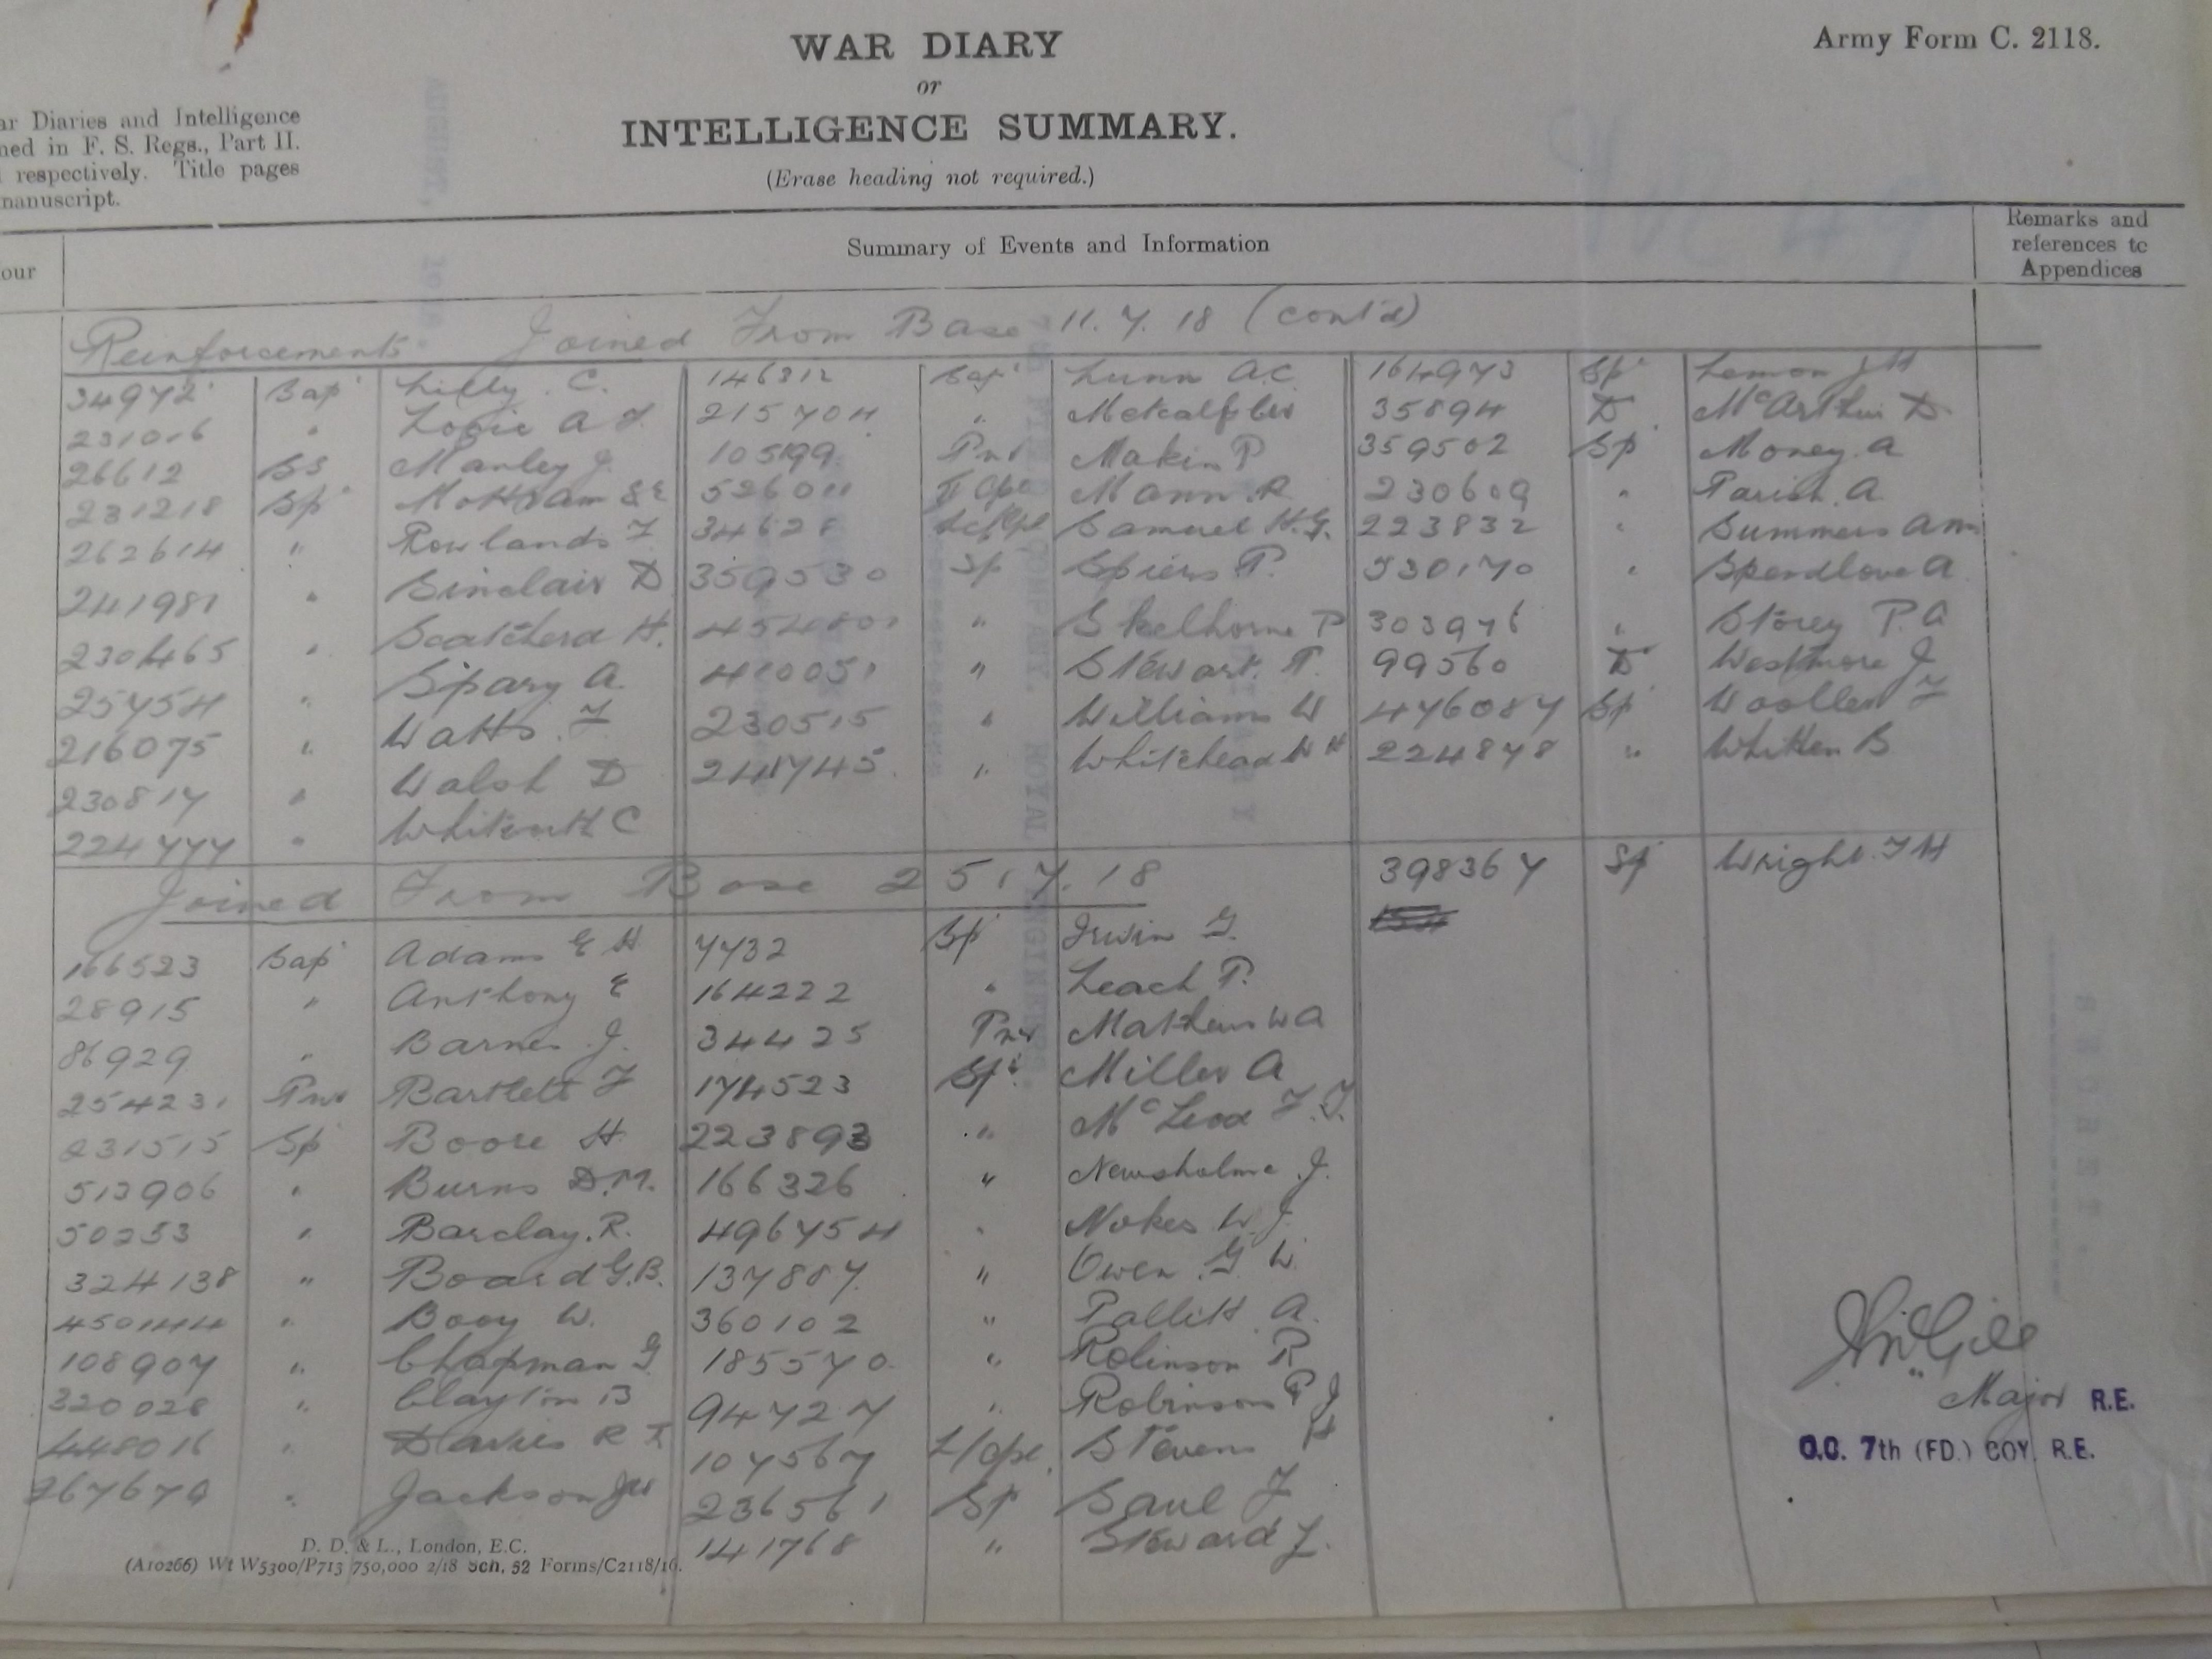 WAR DIARY
Army Form C. 2118.
or
INTELLIGENCE SUMMARY.
(Erase heading not required.)
ar Diaries and Intelligence
ned in F. S. Regs., Part II.
respectively. Title pages
manuscript.
our
Summary of Events and Information
Remarks and
references to
Appendices
Reinforcements Joined From Base 11.7.18 (cont'd)
34972 Sap' Lilly C. 146312 Sap' Lunn A.C. 164973 Sp' Lemon J H
231016 " Logie A 215704 " Metcalf 35894 D McArthur D
26612 SS Manley J 105199 Pnr Makin P 359502 Sp Money. A
231218 Sp' Mottram S E Mann. R 230609 " Parish. A
262614 " Rowlands F 34628 Samuel H.G. 223832 " Summers
241981 " Sinclair D 359530 Sp Spiers P. 530170 " Spendlove A
230465 " Scatcherd H. " Skelhorne P 303976 " Storey P. A
25754 " Spary A. 410051 " Stewart. T. 99560 D Westmore J
216075 " Watts. F 230515 " Williams W 476087 Sp' Woollen F
230817 " Walsh D 241745 " Whitehead W H 224878 " Whitten B
224777 " C
Joined From Base 25.7.18 398367 Sp Wright. F H
166523 Sap' Adams E H 7732 Sp' Irwin G.
28915 " Anthony E 164222 " Leach P.
86929 " Barnes J. 34425 Pnr Mathews W A
254231 Pnr Bartlett F 174523 Sp'. Miller A
231515 Sp' Boore H 223893 " McLeod F. J.
513906 " Burns D.M. 166326 " Newsholme J.
50253 " Barclay. R. 496754 " Nokes W J.
324138 " Board G.B. 137887. " Owen. G W
450144 " Booy W. 360102 " Pallitt A.
108907 " Chapman G 185570. " Robinson R
320028 " Clayton B 94727 " Robinson P J
448016 " Davies R T 107567 L/Cpl. Stevens H
267679 " Jackson 236561 Sp Saul F
141768 " Steward
Major R.E.
O.C. 7th (FD.) COY. R.E.
D. D. & L., London, E.C.
(A10266) Wt W5300/P713 750,000 2/18 Sch. 52 Forms/C2118/16.